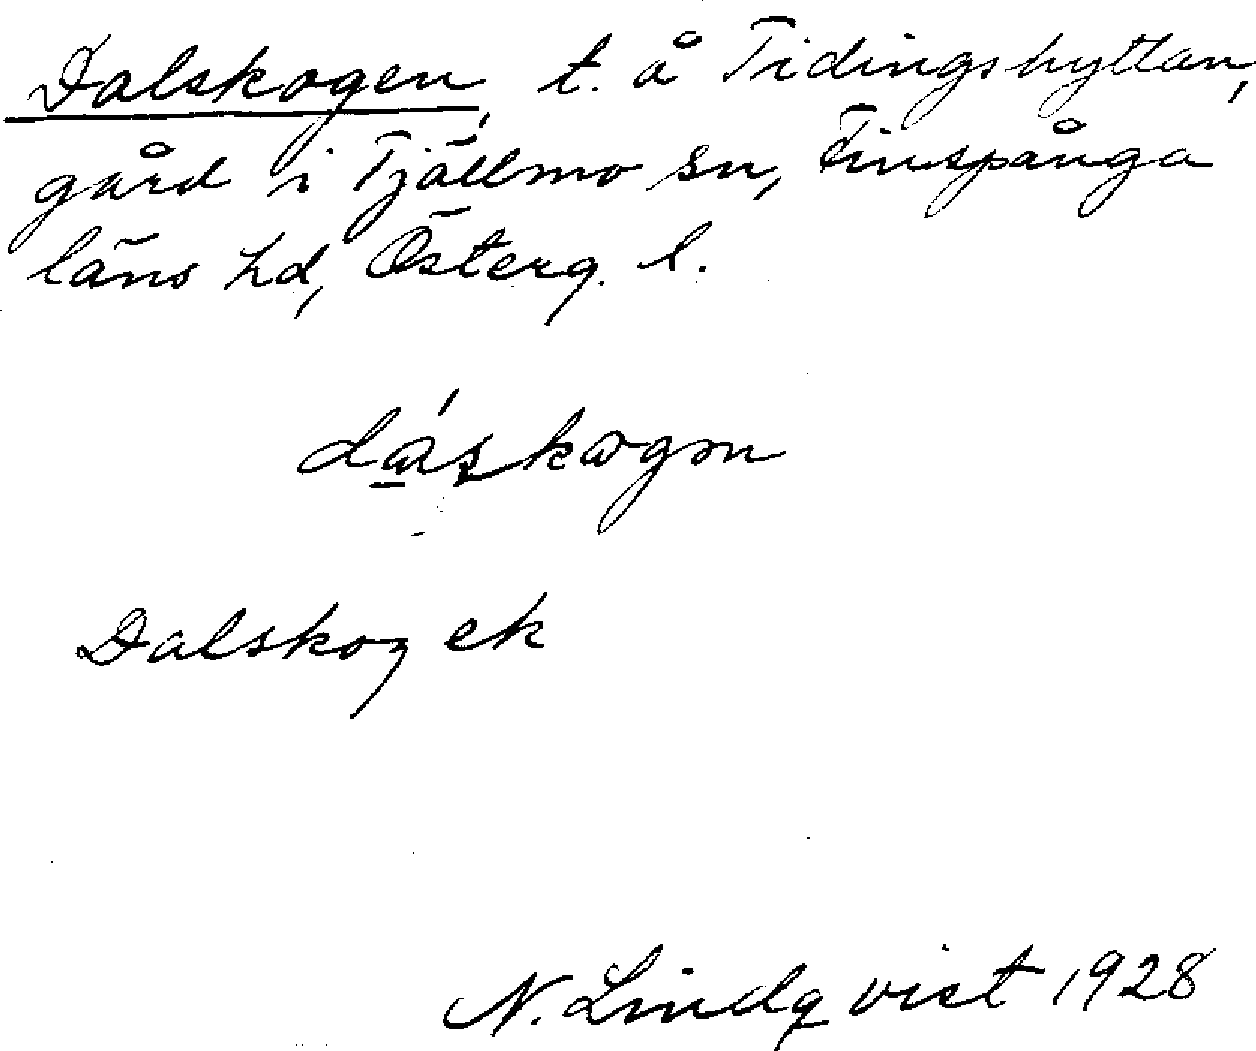 Dalskogen, t. å Tidingshyttan,
gård i Tjällmo sn, Finspånga
läns hd, Österg. l.
dáskogən
Dalskog ek
N. Lindqvist 1928